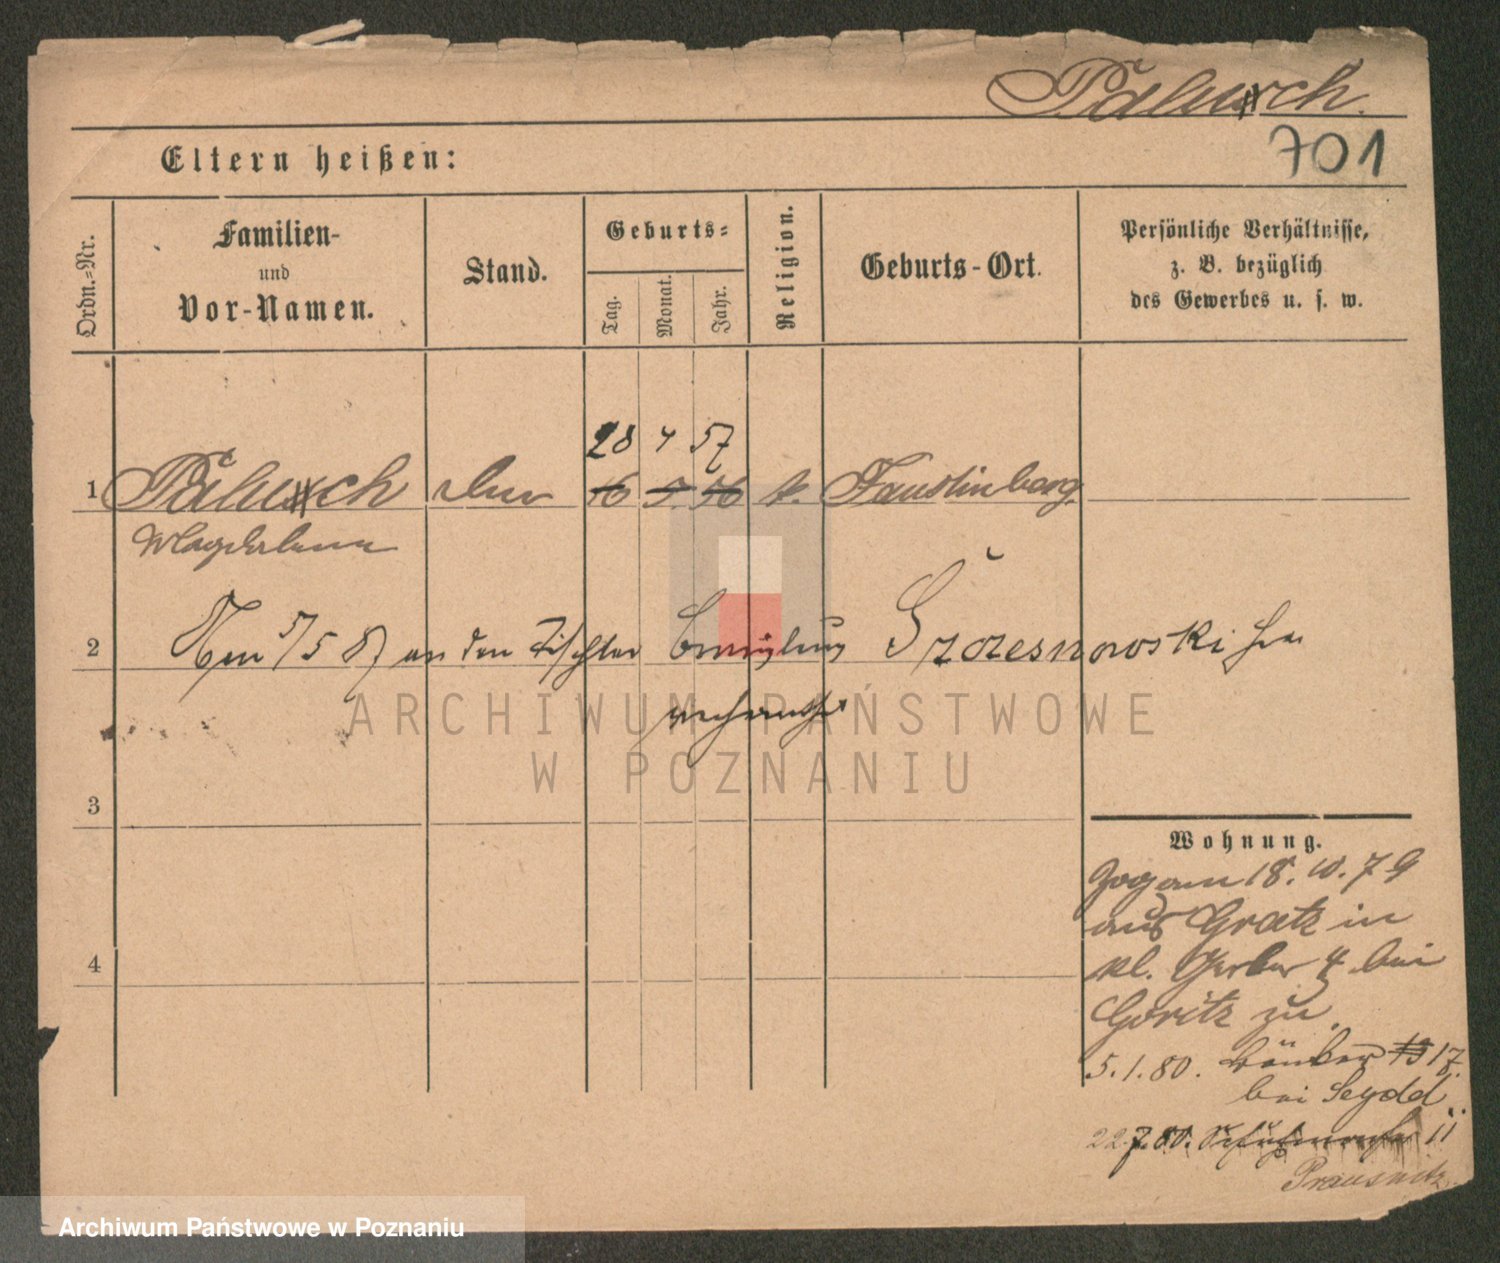 Paluch.
701
Eltern heißen:
Ordn.-Nr.
Familien-
und
Vor-Namen.
Stand.
Geburts-
Tag.
Monat.
Jahr.
Religion.
Geburts-Ort.
Persönliche Verhältnisse,
z. B. bezüglich
des Gewerbes u. s. w.
28 4 57
1 Paluch 16 5. 56 k. Faustinberg
Magdalena
2 5/5 87 an den Tischler Szczesnowski
verheirathet
ARCHIWUM PAŃSTWOWE
W POZNANIU
3
4
Wohnung.
Zog am 18. 10. 79
aus Gratz in
kl. Gerber 4 bei
Goritz zu
5.1.80. 13 17.
bei Seydel
22.7.80. 11
Prausnitz
Archiwum Państwowe w Poznaniu